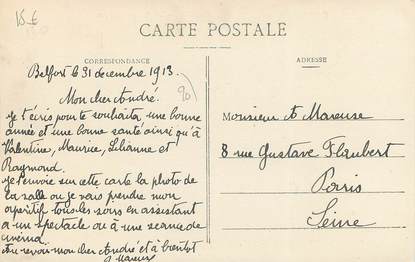 15 €
CARTE POSTALE
CORRESPONDANCE
ADRESSE
Belfort le 31 decembre 1913.
90
Mon cher André.
Je t'écris pour te souhaiter, une bonne
année et une bonne santé ainsi qu'à
Valentine, Maurice, Lilianne et
Raymond.
Je t'envoie sur cette carte la photo de
la salle ou je vais prendre mon
aperitif tous les soirs en assistant
a un spectacle ou à une seance de
cinéma.
Au revoir mon cher André et à bientot
Mareuse
Monsieur A Mareuse
8 rue Gustave Flaubert
Paris
Seine